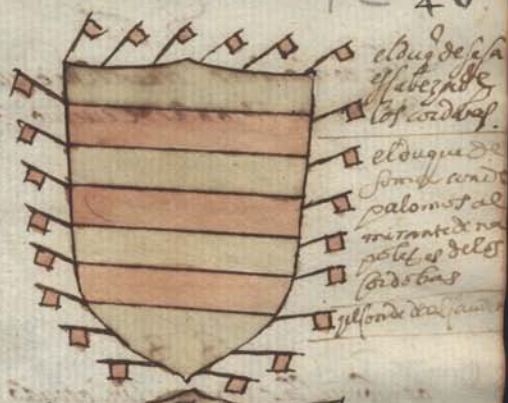 el duq de sesa
es cabeza de
los cordobas
el duque de
soma conde
palomos al
mirante de na
poles es de los
cordobas
el conde de